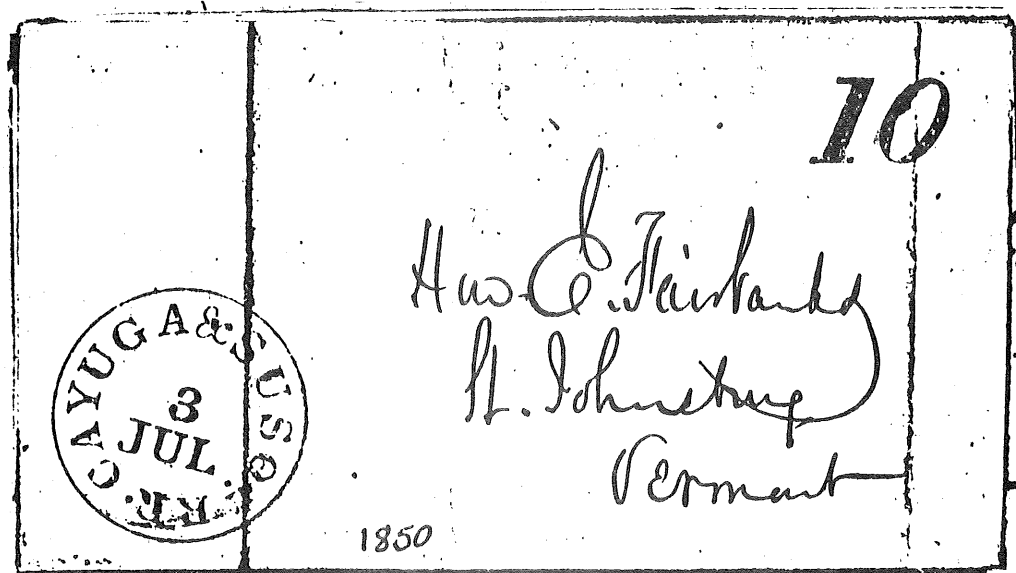 10
Hon. E. Fairbanks
St. Johnsbury
Vermont
CAYUGA & SUSQ. R.R.
3
JUL
1850